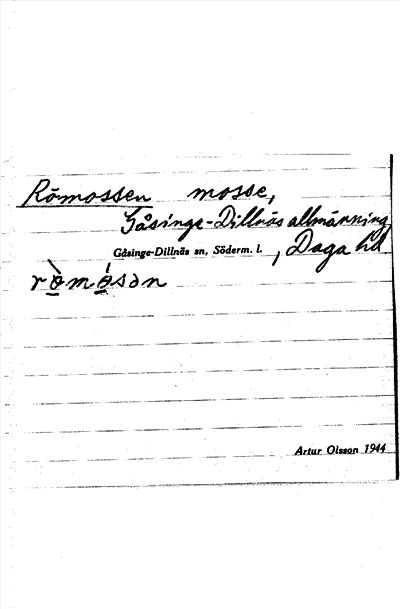 Römossen mosse,
Gåsinge-Dillnäs allmänning
Gåsinge-Dillnäs sn, Söderm. l. , Daga hd
Artur Olsson 1944